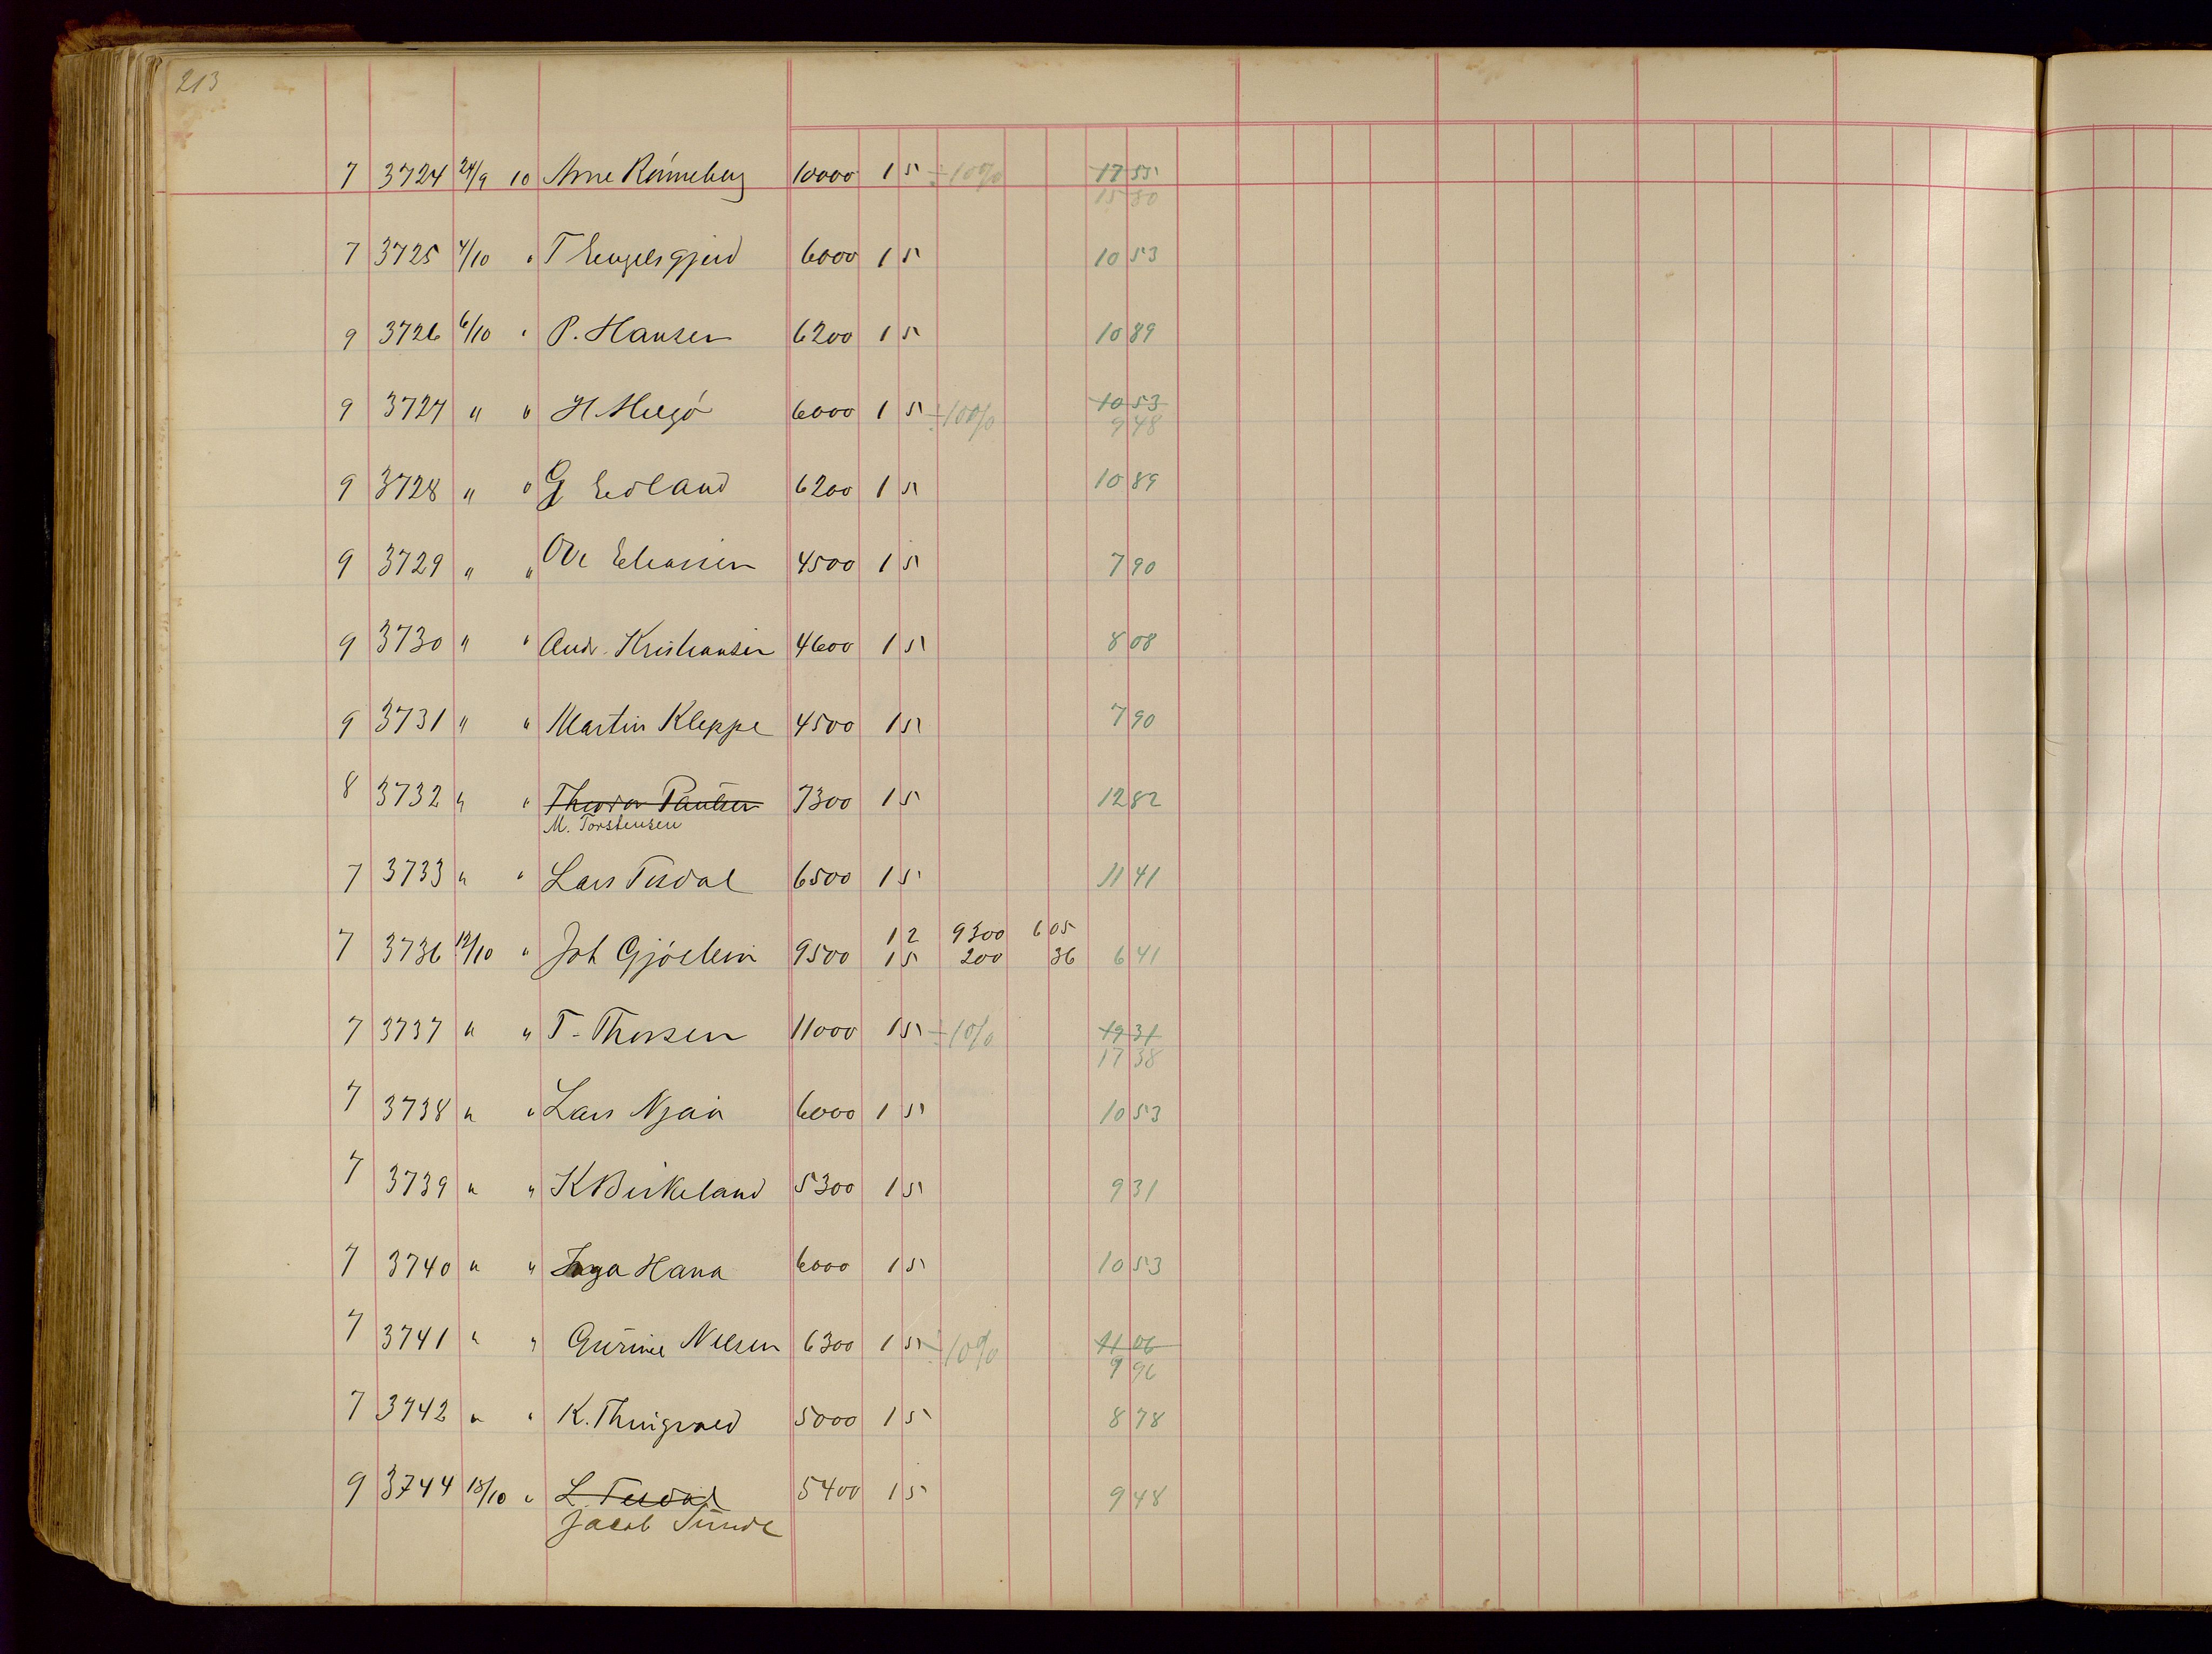 213
7 3724 24/9 10 Arne Rönneberg 10000 1 5 ÷10% 17 55
15 80
7 3725 4/10 " T Engelsgjerd 6000 1 5 10 53
9 3726 6/10 " P. Hansen 6200 1 5 10 89
9 3727 " " H. 6000 1 5 ÷10% 10 53
9 48
9 3728 " " G Eedland 6200 1 5 10 89
9 3729 " " Ole Eliassen 4500 1 5 7 90
9 3730 " " Andr. Kristiansen 4600 1 5 8 08
9 3731 " " Martin Kleppe 4500 1 5 7 90
8 3732 " " Theodor Paulsen 7300 1 5 12 82
M. Torstensen
7 3733 " " Lars Tisdal 6500 1 5 11 41
1 2 9300 6 05
7 3736 12/10 " Joh Gjöstein 9500 1 5 200 36 6 41
7 3737 " " T. Thorsen 11000 1 5 ÷10% 19 31
17 38
7 3738 " " Lars Njaa 6000 1 5 10 53
7 3739 " " K Birkeland 5300 1 5 9 31
7 3740 " " Inga Hana 6000 1 5 10 53
7 3741 " " Gurine Nilsen 6300 1 5 ÷10% 11 06
9 96
7 3742 " " K. Thingvold 5000 1 5 8 78
9 3744 18/10 " L. Tisdal 5400 1 5 9 48
Jacob Sunde